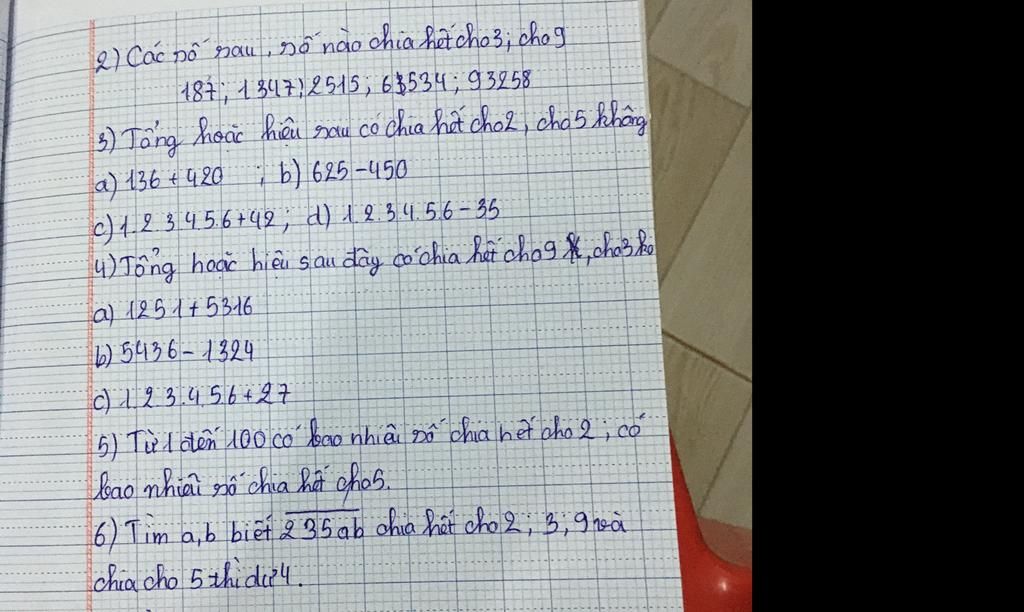 2) Các số sau, số nào chia hết cho 3; cho 9
187; 1347; 2515; 6534; 93258
3) Tổng hoặc hiệu sau có chia hết cho 2, cho 5 không
a) 136 + 420 ; b) 625 - 450
c) 1.2.3.4.5.6 + 42; d) 1.2.3.4.5.6 - 35
4) Tổng hoặc hiệu sau đây có chia hết cho 9, cho 3 ko
a) 1251 + 5316
b) 5436 - 1324
c) 1.2.3.4.5.6 + 27
5) Từ 1 đến 100 có bao nhiêu số chia hết cho 2; có
bao nhiêu số chia hết cho 5.
6) Tìm a, b biết 235ab chia hết cho 2; 3; 9 và
chia cho 5 thì dư 4.